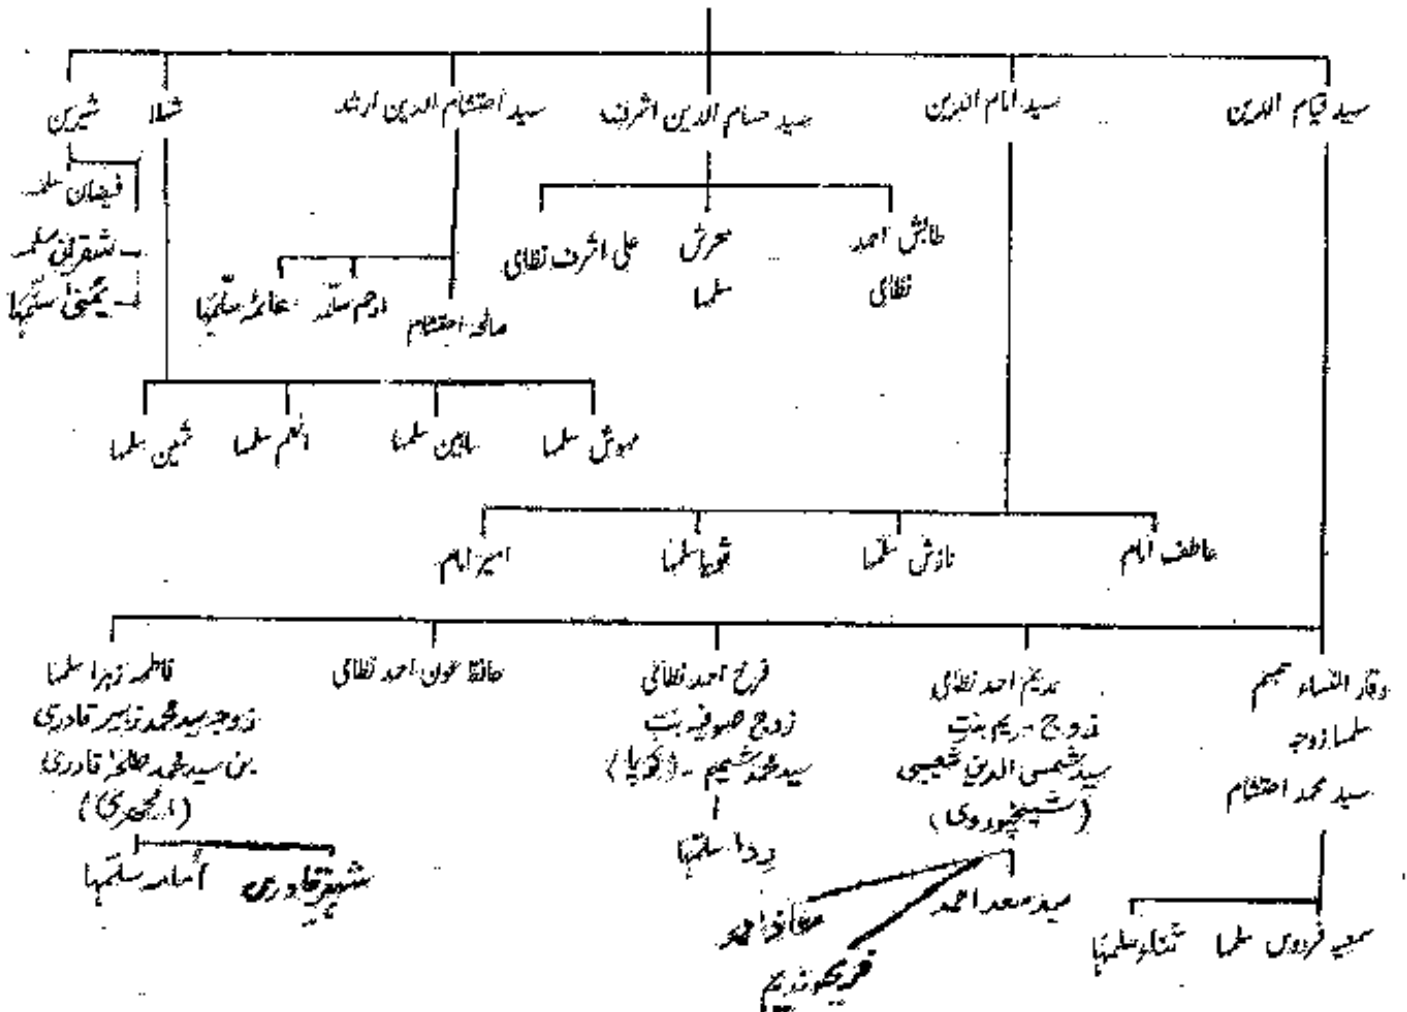 سید قیام الدین
سید امام الدین
سید حسام الدین اشرف
سید احتشام الدین ارشد
شہلا
شیریں
فیضان سلمہ
سلمہ
یمنیٰ سلّمہا
طابش احمد
نظامی
سحرش
سلمہا
علی اشرف نظامی
صالحہ احتشام
ارحم سلّمہ
سلّمہا
مہوش سلمہا
ماہین سلمہا
انعم سلمہا
ثمین سلمہا
عاطف امام
نازش سلمہا
ثوبیا سلمہا
امیر امام
وقار النساء تبسم
سلمہا زوجہ
سید محمد احتشام
ندیم احمد نظامی
زوج مریم بنت
سید شمس الدین شعیبی
(شیخپوروی)
فرخ احمد نظامی
زوج صوفیہ بنت
سید محمد شمیم -
حافظ عون احمد نظامی
فاطمہ زہرا سلمہا
زوجہ سید محمد زبیر قادری
بن سید محمد طلحہٰ قادری
(امجھری)
ردا سلمہا
اُمامہ سلّمہا
قادری
سید سعد احمد
معاذ احمد
ندیم
سمعیہ فردوس سلمہا
ثناء سلمہا